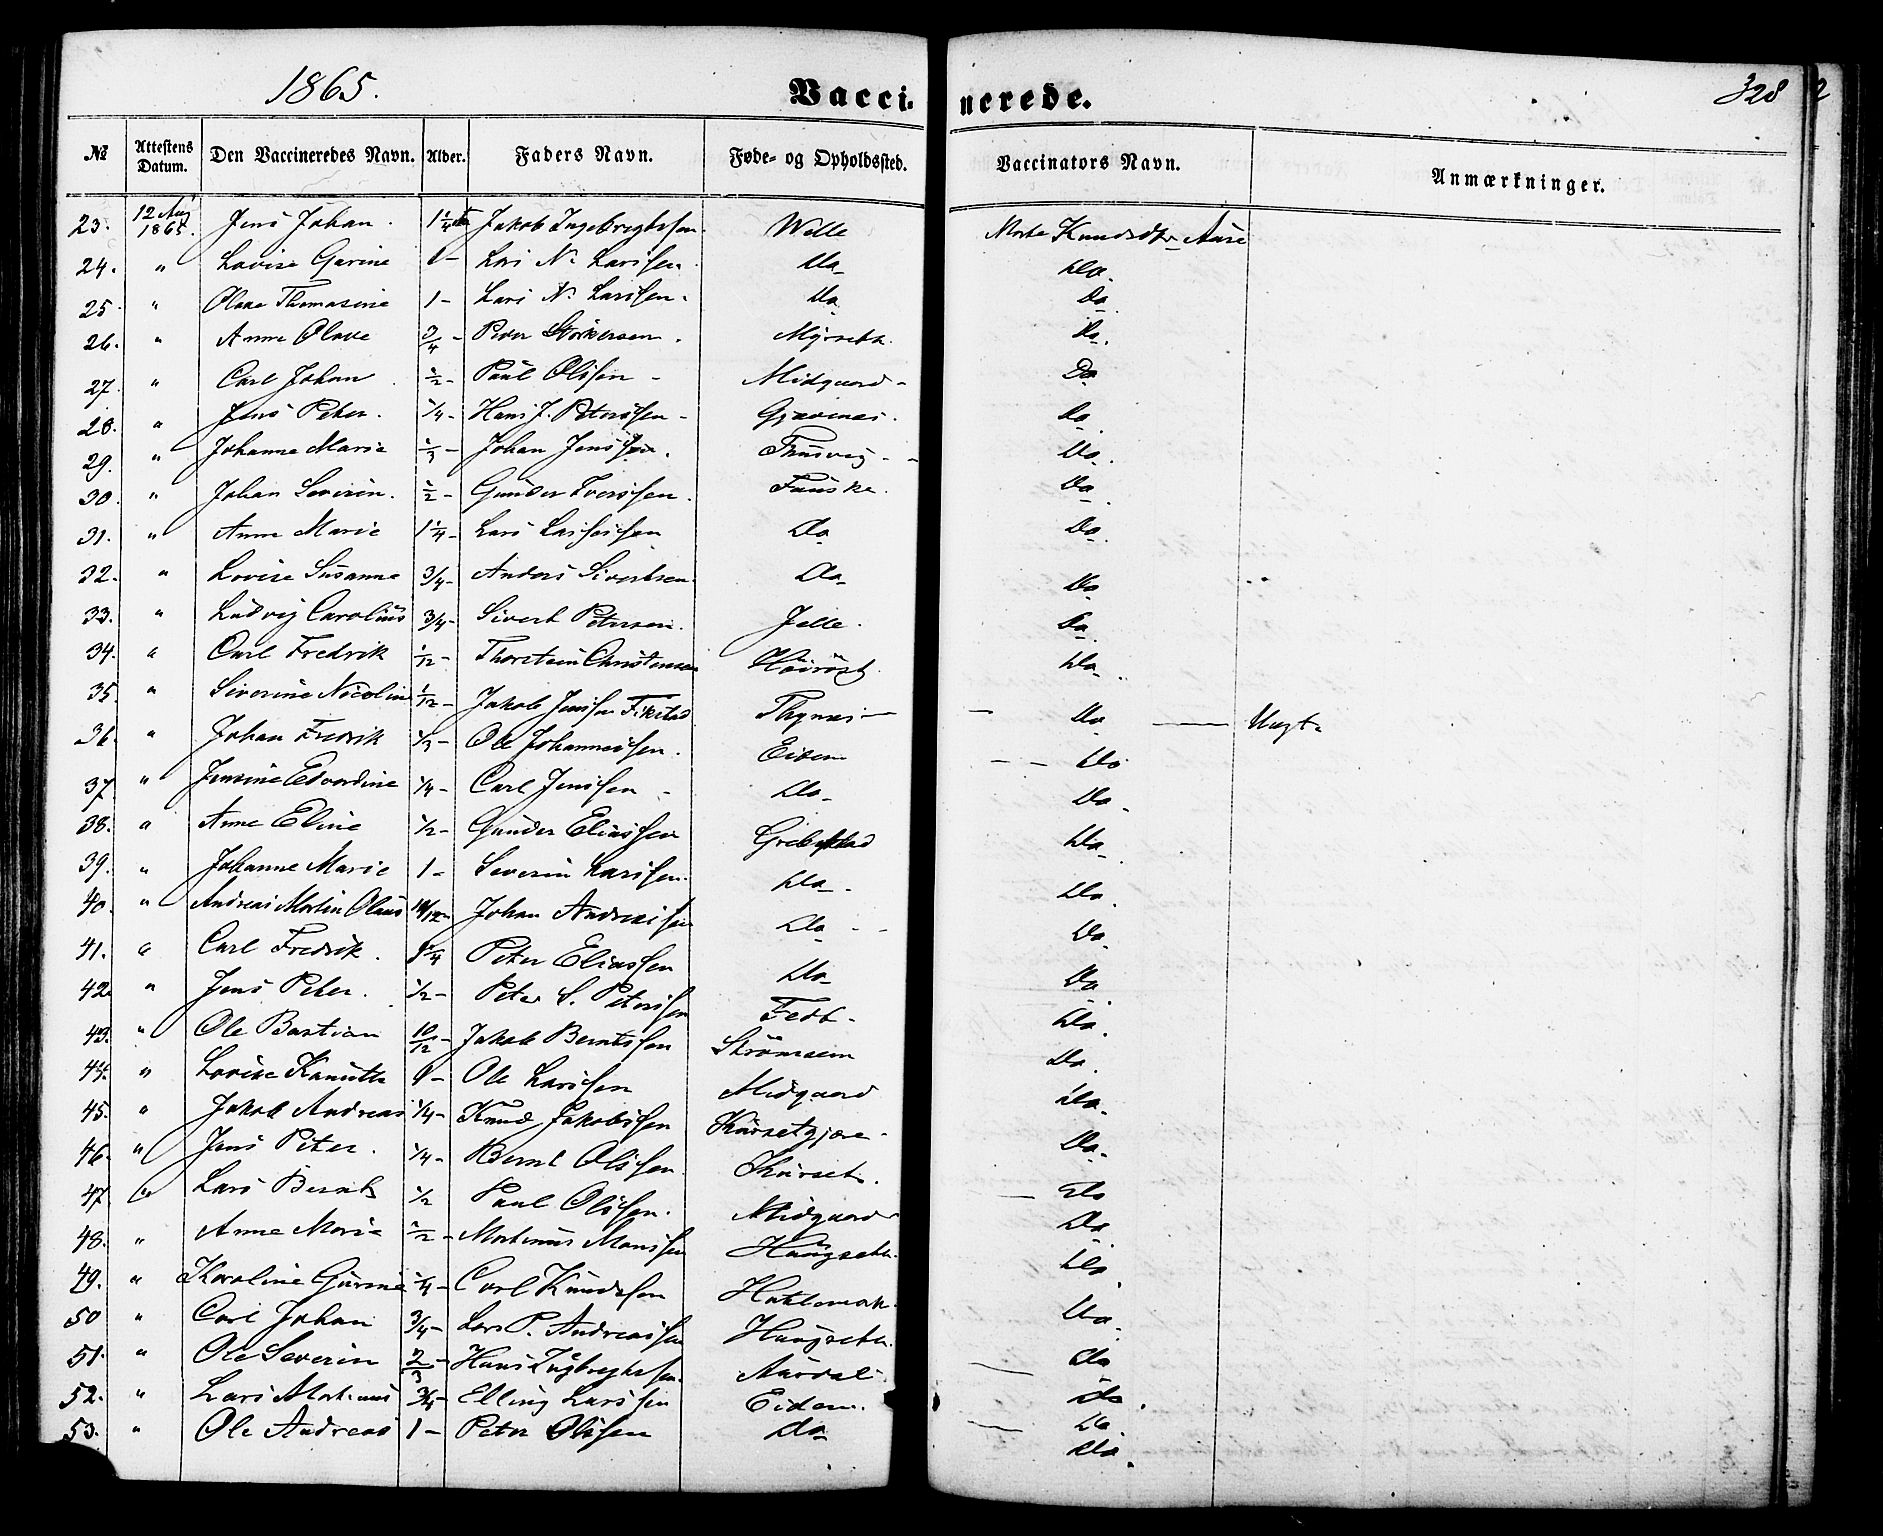 1865.
Vaccinerede.
328
№ Attestens Datum. Den Vaccineredes Navn. Alder. Faders Navn. Føde- og Opholdssted. Vaccinators Navn. Anmærkninger.
23. 12 Aug 1865. Jens Johan. 1 1/4 Jakob Ingebregtssen Welle Knudsdtr Aase
24. " Lovise Garine 1 - Lars N. Larssen Do Do
25. " Olave Thomasine 1 - Lars N. Larssen Do Do
26. " Anne Olave 3/4 - Peder Do
27. " Carl Johan 1/2 - Paul Olssen Midgaard Do
28. " Jens Peter. 1/4 - Hans J. Peterssen Do
29. " Johanne Marie 1/3 - Johan Jenssen. Do
30. " Johan Severin. 1/2 - Gunder Iverssen Fauske. Do
31. " Anne Marie 1 1/4 - Lars Do Do
32. " Lovise Susanne 3/4 - Anders Sivertsen Do Do
33. " Ludvig Carolius 3/4 - Sivert Petersen. Jelle. Do
34. " Carl Fredrik 1/12 - Thorstein Christensen Do
35. " Siverine Nicoline 1/12 - Jakob Jenssen Fikstad Do
36. " Johan Fredrik 1/3 - Ole Johannessen. Eidem Do
37. " Jensine Edvardine 1/4 - Carl Jenssen Do Do
38. " Anne Eline 1/2 - Gunder Eliassen Grebstad Do
39. " Johanne Marie 1 - Severin Larssen. Do Do
40. " Andreas Martin Olaus Johan Andreassen Do Do
41. " Carl Fredrik. Peter Eliassen Do Do
42. " Jens Peter. 1/2 - Peter S. Peterssen Do
43. " Ole Bastian 10/12 - Jakob Berntssen Do
44. " Lovise Kanutte 1 - Ole Larssen Midgaard Do
45. " Jakob Andreas 1/4 - Knud Jakobssen Kursetgjære Do
46. " Jens Peter. 1/4 - Bernt Olssen Kurset. Do
47. " Lars Bernt 1/2 Paul Olssen. Midgaard Do
48. " Anne Marie 1/2 - Martinus Monssen Haugseth. Do
49. " Karoline Gurine 1/4 - Carl Knudssen Do
50 " Carl Johan 3/4 - Lars P. Andreassen Haugseth. Do
51. " Ole Severin 2/3 - Hans Ingbregtssen. Aurdal. Do
52. " Lars Martinus 3/4 - Elling Larssen Eidem. Do
53. " Ole Andreas 1 - Peter Olssen Do Do
Do